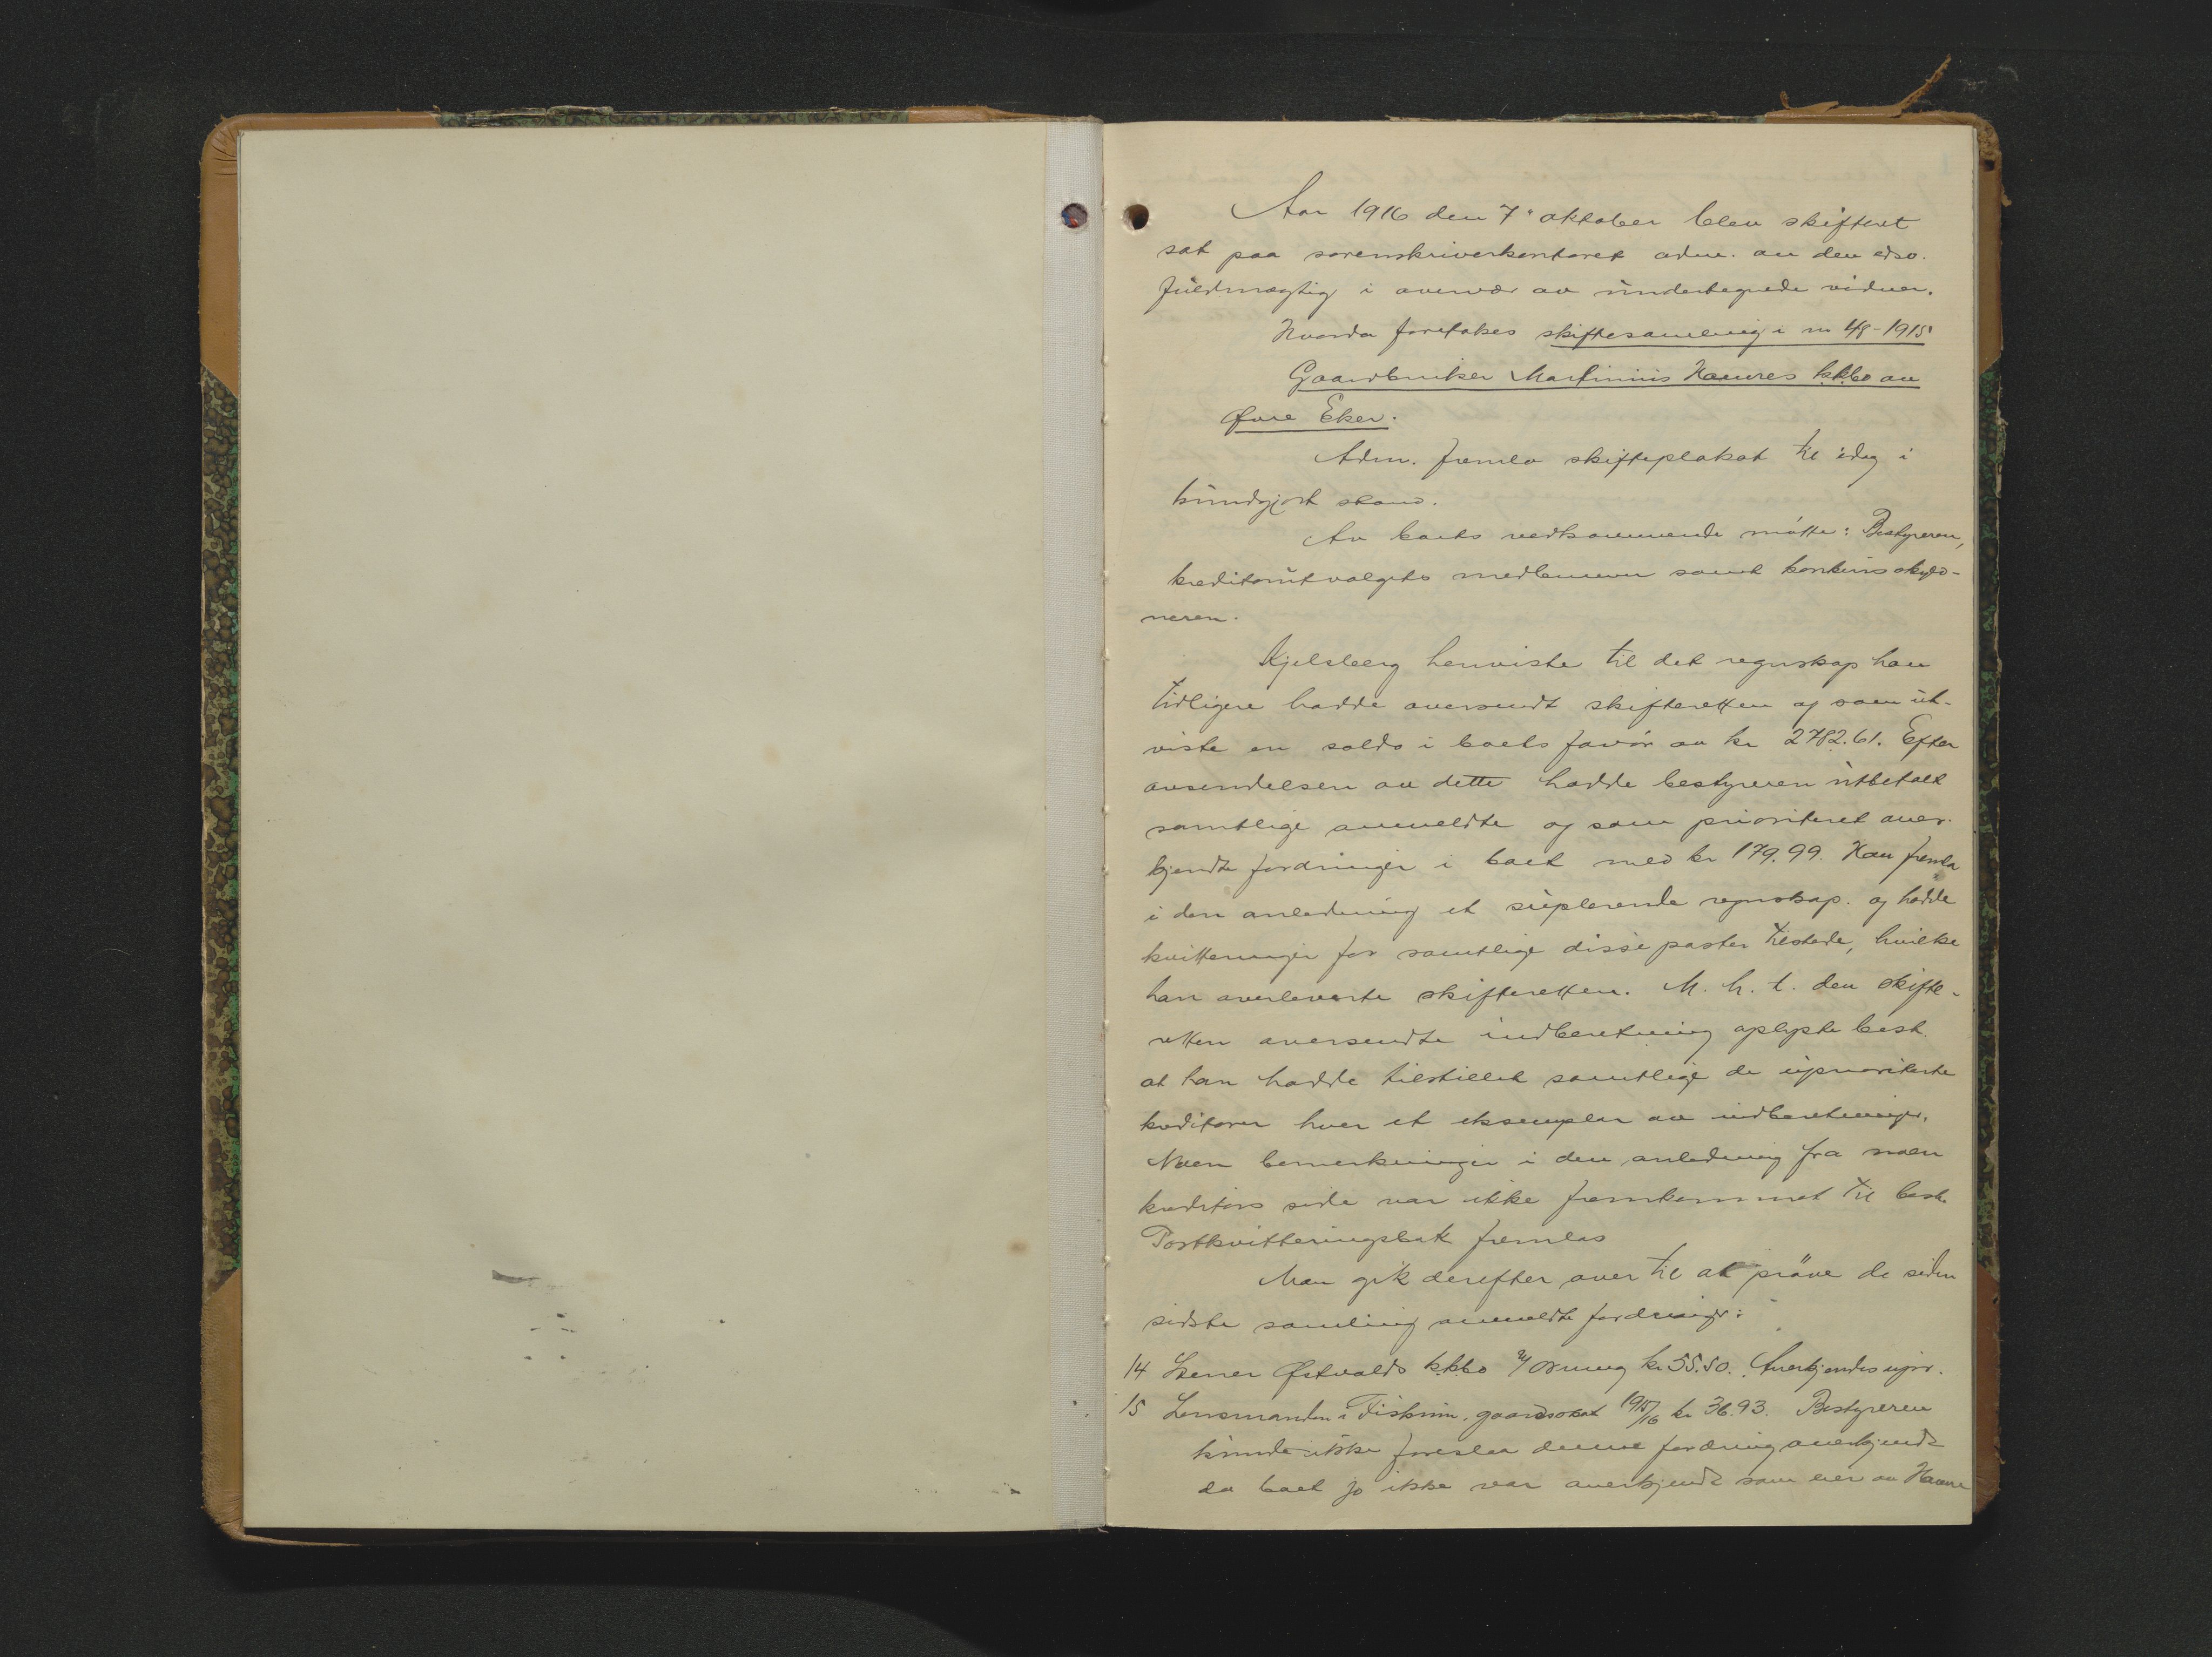 Aar 1916 den 7' oktober blev skifteret
sat paa sorenskriverkontoret adm. av den edsv.
fuldmægtig i overvær av undertegnede vidner.
Hvorda foretokes skiftesamling i nr 48-1915
Gaardbruker Martinius Hamres kkbo av
Øvre Eker.
Adm. fremla skifteplakat til idag i
kundgjort stand.
Av boets vedkommende møtte: Bestyreren,
kreditorutvalgets medlemmer samt konkursskyld-
neren.
Kjelsberg henviste til det regnskap han
tidligere hadde oversendt skifteretten og som ut-
viste en saldo i boets favør av kr 2782.61. Efter
avsendelsen av dette hadde bestyreren utbetalt
samtlige anmeldte og som prioritert aner-
kjendte fordringer i boet med kr 179.99. Han fremla
i den anledning et suplerende regnskap. og hadde
kvitteringer for samtlige disse poster tilstede, hvilke
han overleverte skifteretten. M. h. t. den skifte-
retten oversendte indberetning oplyste best.
at han hadde tilstillet samtlige de upriorite­rte
kreditorer hver et eksemplar av indberetningen.
Noen bemerkninger i den anledning fra noen
kreditors side var ikke fremkommet til best.
Postkvitteringsbok fremlas
Man gik derefter over til at prøve de siden
sidste samling anmeldte fordringer:
14 Stener Østvolds kkbo kr 55.50. Anerkjendes upr.
15 Lensmanden i Fiskum, gaardsskat 1915/16 kr 36.93. Bestyreren
kunde ikke foreslaa denne fordring anerkjendt
da boet jo ikke var anerkjendt som eier av Hamre